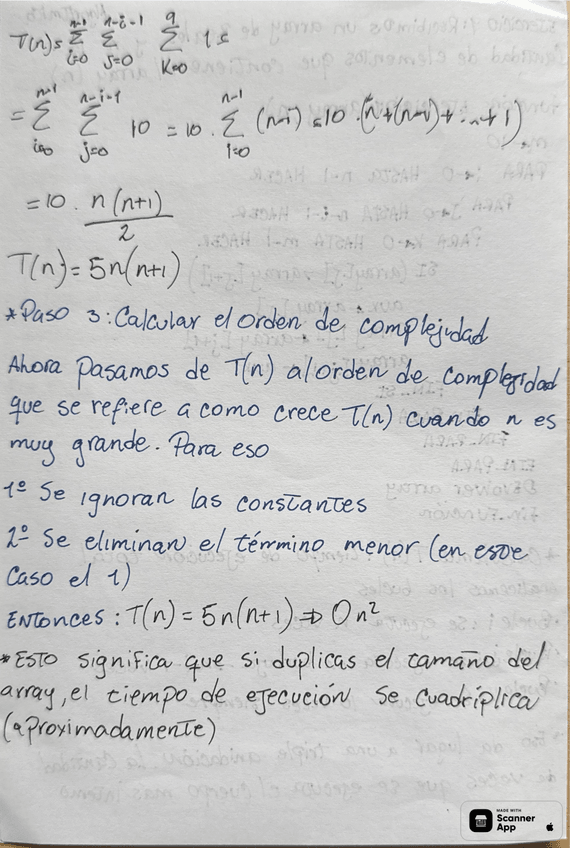 T(n)= Σ_{i=0}^{n-1} Σ_{j=0}^{n-i-1} Σ_{k=0}^{9} 1 =
= Σ_{i=0}^{n-1} Σ_{j=0}^{n-i-1} 10 = 10 · Σ_{i=0}^{n-1} (n-i) = 10 · (n+(n-1)+...+1)
= 10 · n(n+1)/2
T(n) = 5n(n+1)
*Paso 3: Calcular el orden de complejidad
Ahora pasamos de T(n) al orden de complejidad
que se refiere a como crece T(n) cuando n es
muy grande. Para eso
1º Se ignoran las constantes
2º Se eliminan el término menor (en este
caso el 1)
Entonces: T(n) = 5n(n+1) ⇒ On²
*Esto significa que si duplicas el tamaño del
array, el tiempo de ejecución se cuadríplica
(aproximadamente)
MADE WITH
Scanner
App